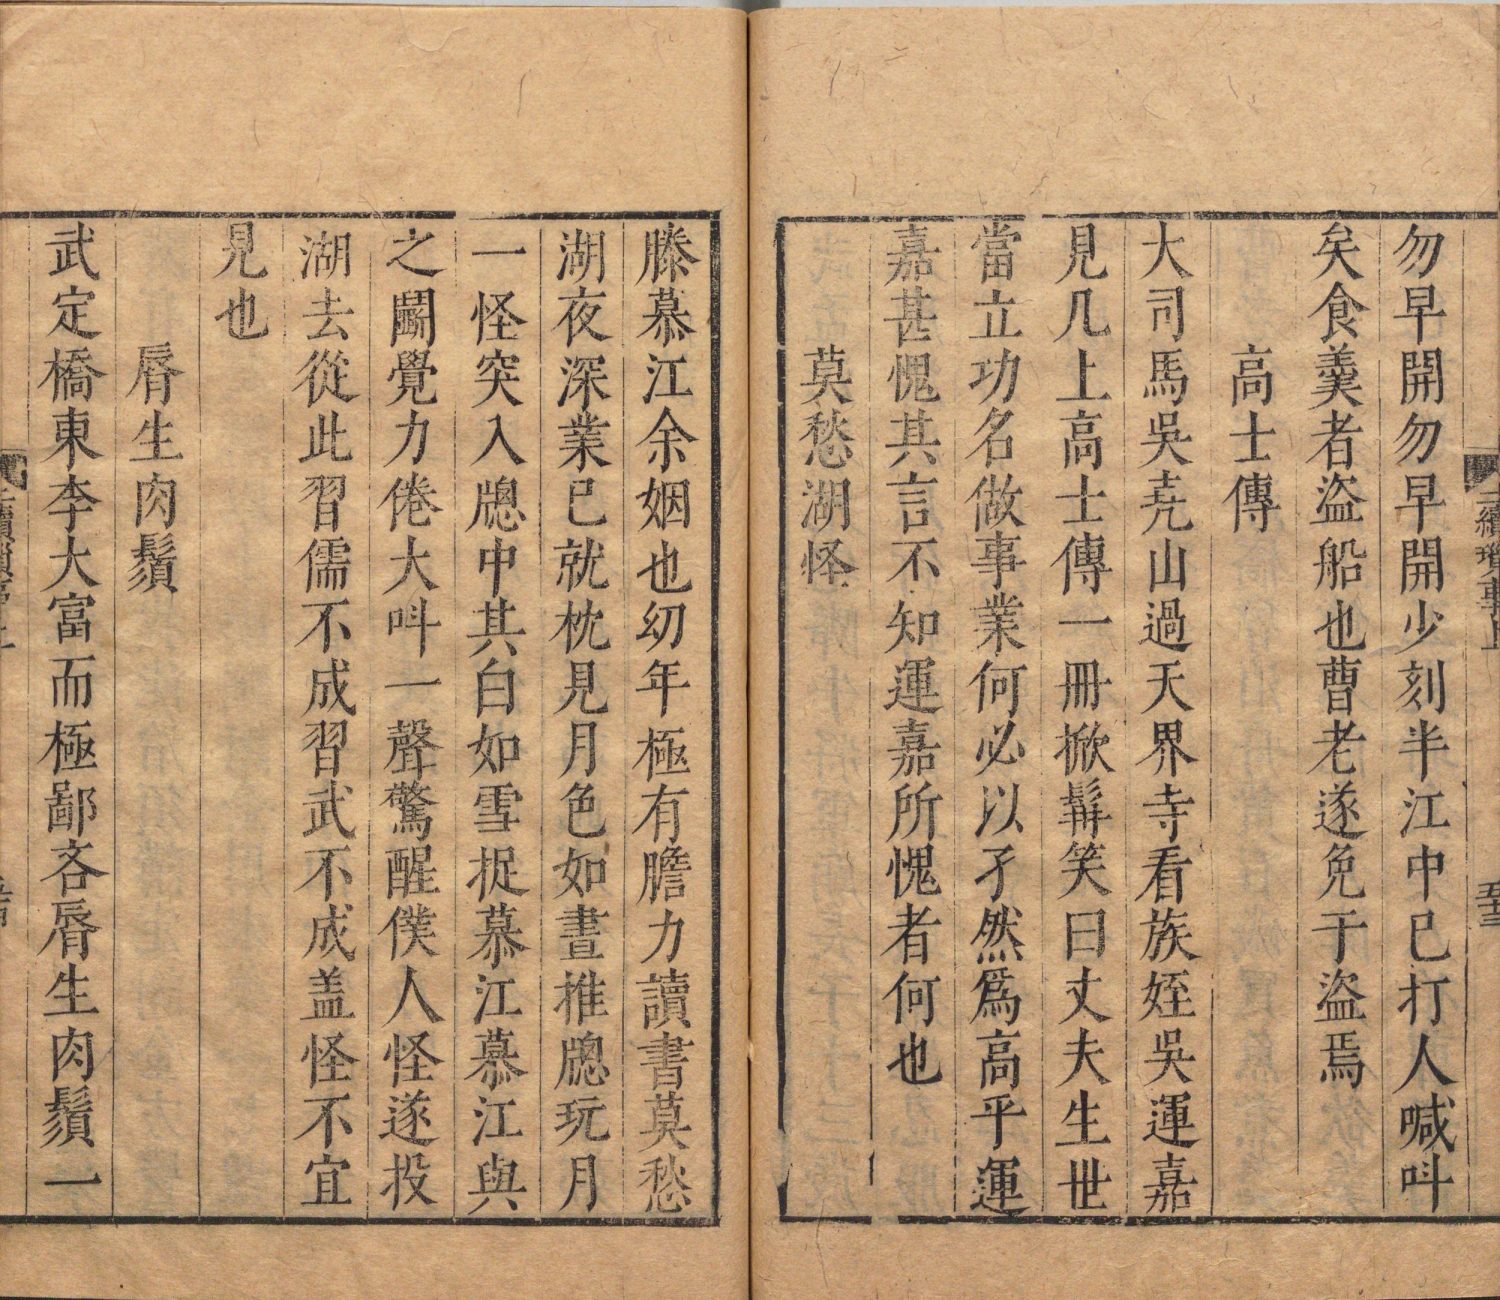 二續瑣事上
五十三
勿早開勿早開少刻半江中已打人喊呌
矣食羹者盜船也曹老遂免于盜焉
高士傳
大司馬吳尭山過天界寺看族姪吳運嘉
見几上高士傳一冊掀髯笑曰丈夫生世
當立功名做事業何必以孑然爲高乎運
嘉甚愧其言不知運嘉所愧者何也
莫愁湖怪
滕慕江余姻也幼年極有膽力讀書莫愁
湖夜深業已就枕見月色如晝推牕玩月
一怪突入牕中其白如雪捉慕江慕江與
之鬭覺力倦大呌一聲驚醒僕人怪遂投
湖去從此習儒不成習武不成盖怪不宜
見也
脣生肉鬚
武定橋東李大富而極鄙吝脣生肉鬚一